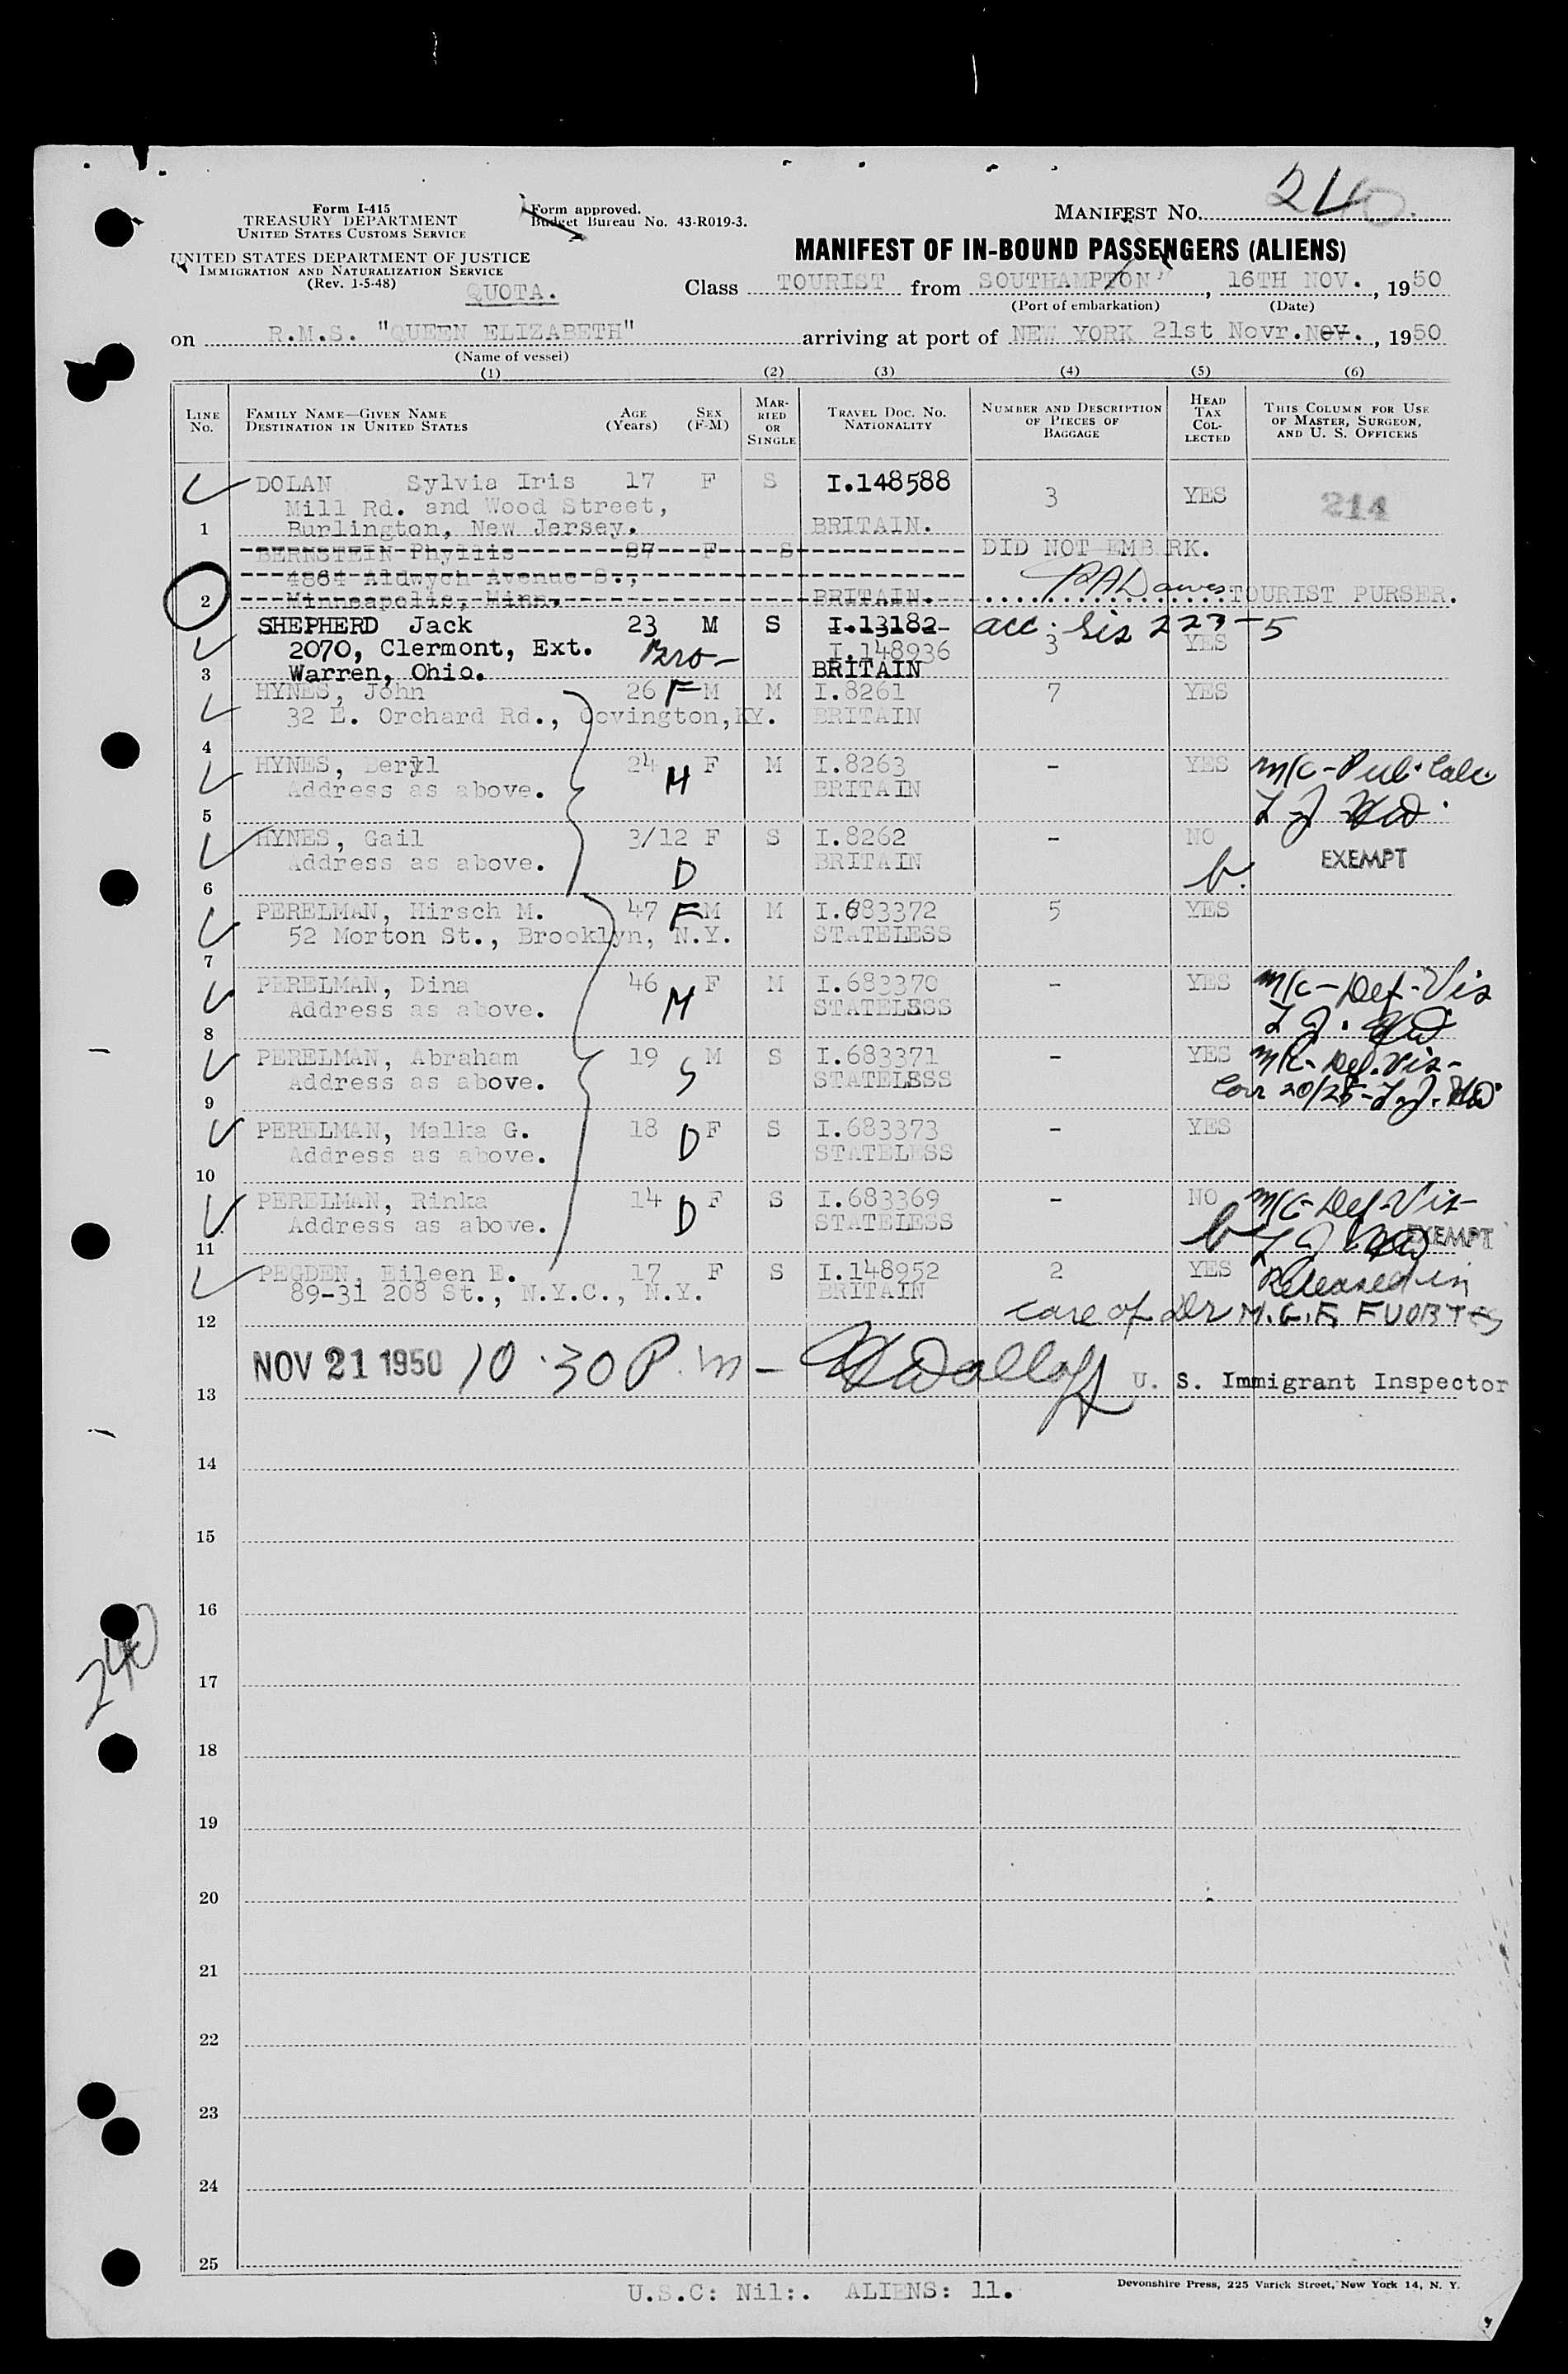 Form I-415
TREASURY DEPARTMENT
UNITED STATES CUSTOMS SERVICE
Form approved.
Budget Bureau No. 43-R019-3.
MANIFEST No. 240
UNITED STATES DEPARTMENT OF JUSTICE
IMMIGRATION AND NATURALIZATION SERVICE
(Rev. 1-5-48)
QUOTA.
MANIFEST OF IN-BOUND PASSENGERS (ALIENS)
Class TOURIST from SOUTHAMPTON, 16TH NOV., 1950
(Port of embarkation) (Date)
on R.M.S. "QUEEN ELIZABETH" arriving at port of NEW YORK 21st Novr. Nov., 1950
(Name of vessel)
(1) (2) (3) (4) (5) (6)
LINE No. FAMILY NAME—GIVEN NAME DESTINATION IN UNITED STATES AGE (Years) SEX (F-M) MARRIED OR SINGLE TRAVEL DOC. No. NATIONALITY NUMBER AND DESCRIPTION OF PIECES OF BAGGAGE HEAD TAX COLLECTED THIS COLUMN FOR USE OF MASTER, SURGEON, AND U. S. OFFICERS
DOLAN Sylvia Iris 17 F S I.148588 3 YES 214
Mill Rd. and Wood Street,
1 Burlington, New Jersey. BRITAIN.
BERNSTEIN Phyllis 27 F S DID NOT EMBARK.
4864 Aldwych Avenue S.,
2 Minneapolis, Minn. BRITAIN. PADawes TOURIST PURSER.
SHEPHERD Jack 23 M S I.13182 acc. Sis 223-5
2070, Clermont, Ext. Bro- I.148936 3 YES
3 Warren, Ohio. BRITAIN
HYNES, John 26 F M M I.8261 7 YES
32 E. Orchard Rd., Covington, KY. BRITAIN
4
HYNES, Beryl 24 M F M I.8263 - YES m/c-Pub.
Address as above. BRITAIN
5
HYNES, Gail 3/12 F S I.8262 - NO
Address as above. D BRITAIN EXEMPT
6
PERELMAN, Hirsch M. 47 F M M I.683372 5 YES
52 Morton St., Brooklyn, N.Y. STATELESS
7
PERELMAN, Dina 46 M F M I.683370 - YES m/c-Def-Vis
Address as above. STATELESS
8
PERELMAN, Abraham 19 S M S I.683371 - YES m/c-Def.Vis-
Address as above. STATELESS Corr 20/25-
9
PERELMAN, Malka G. 18 D F S I.683373 - YES
Address as above. STATELESS
10
PERELMAN, Rinka 14 D F S I.683369 - NO m/c-Def-Vis-
Address as above. STATELESS EXEMPT
11
PEGDEN, Eileen E. 17 F S I.148952 2 YES Released in
89-31 208 St., N.Y.C., N.Y. BRITAIN care of Dr M.G.F. FUORTES
12
NOV 21 1950 10.30 P.m- U. S. Immigrant Inspector
13
14
15
16
240
17
18
19
20
21
22
23
24
25
U.S.C: Nil:. ALIENS: 11.
Devonshire Press, 225 Varick Street, New York 14, N. Y.